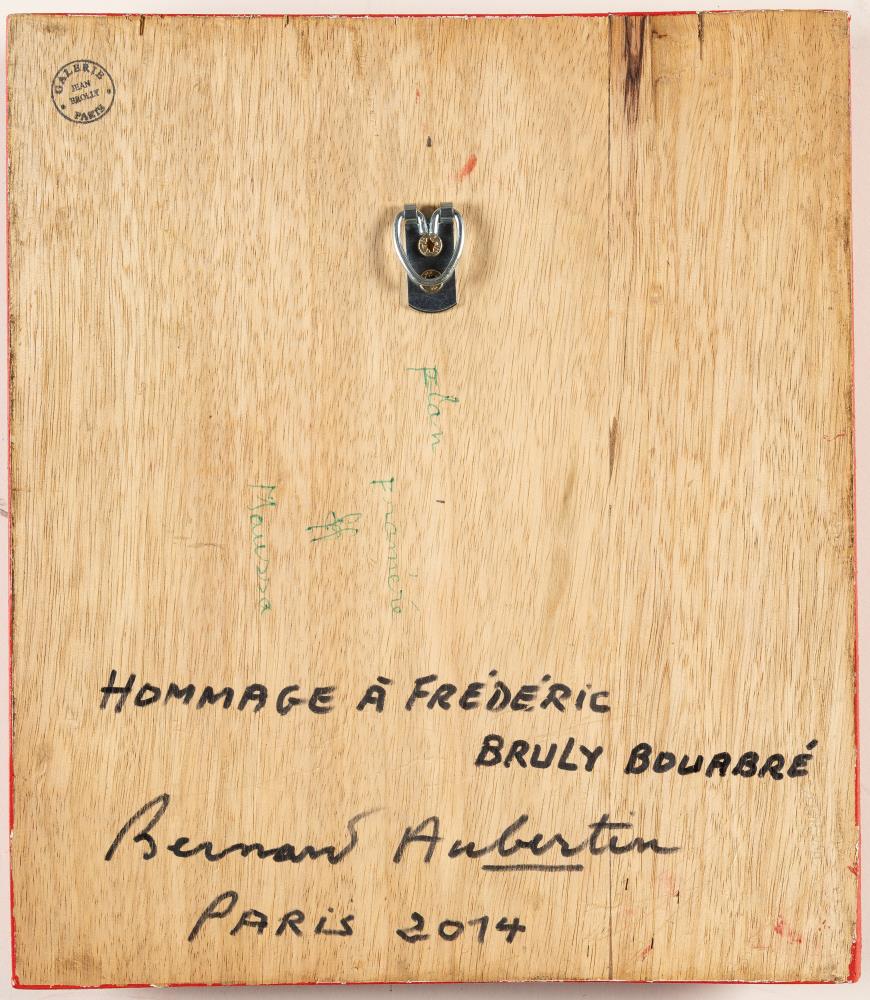 GALERIE
JEAN
BROLLY
PARIS
plan
Maussa
HOMMAGE À FRÉDÉRIC
BRULY BOUABRÉ
Bernard Aubertin
PARIS 2014